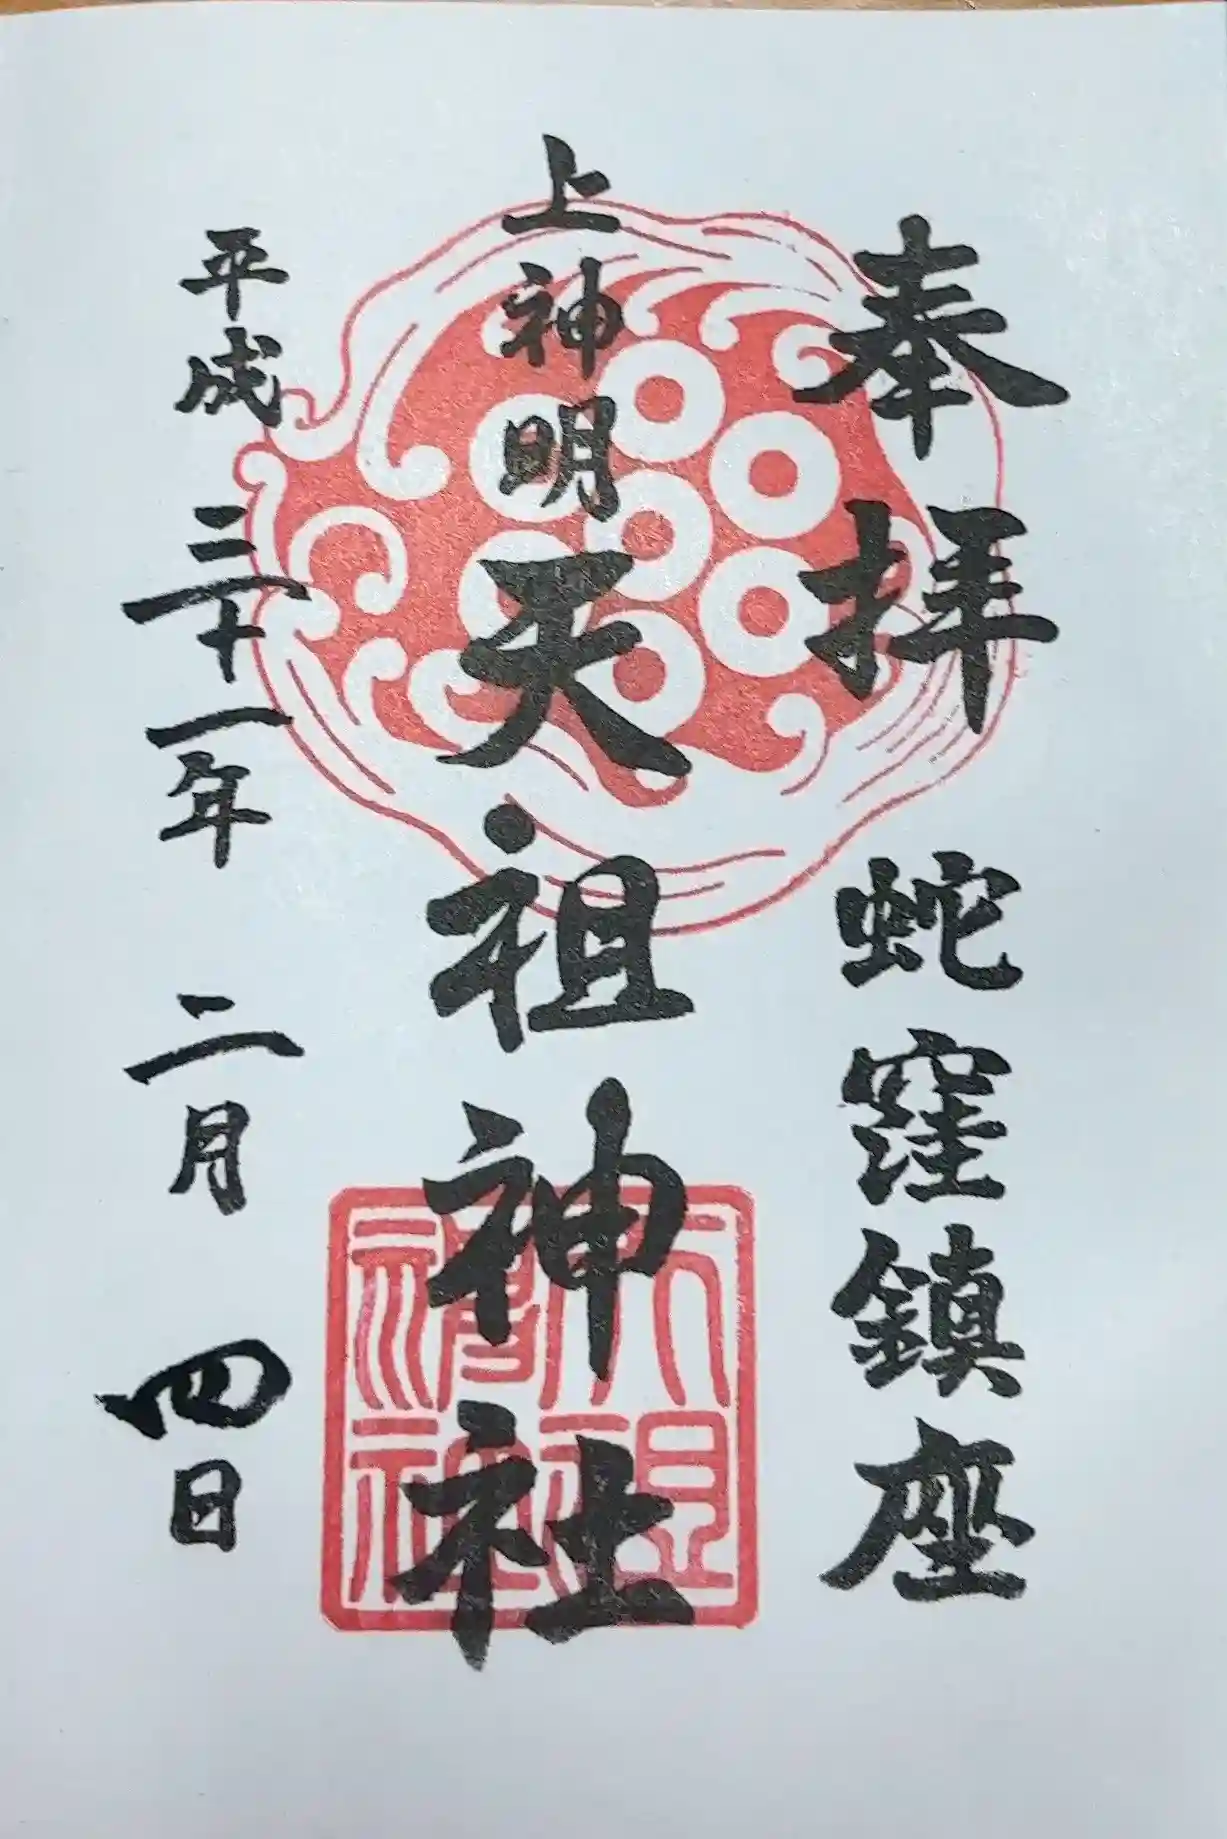 奉拝 蛇窪鎮座
上神明天祖神社
平成三十一年 二月 四日